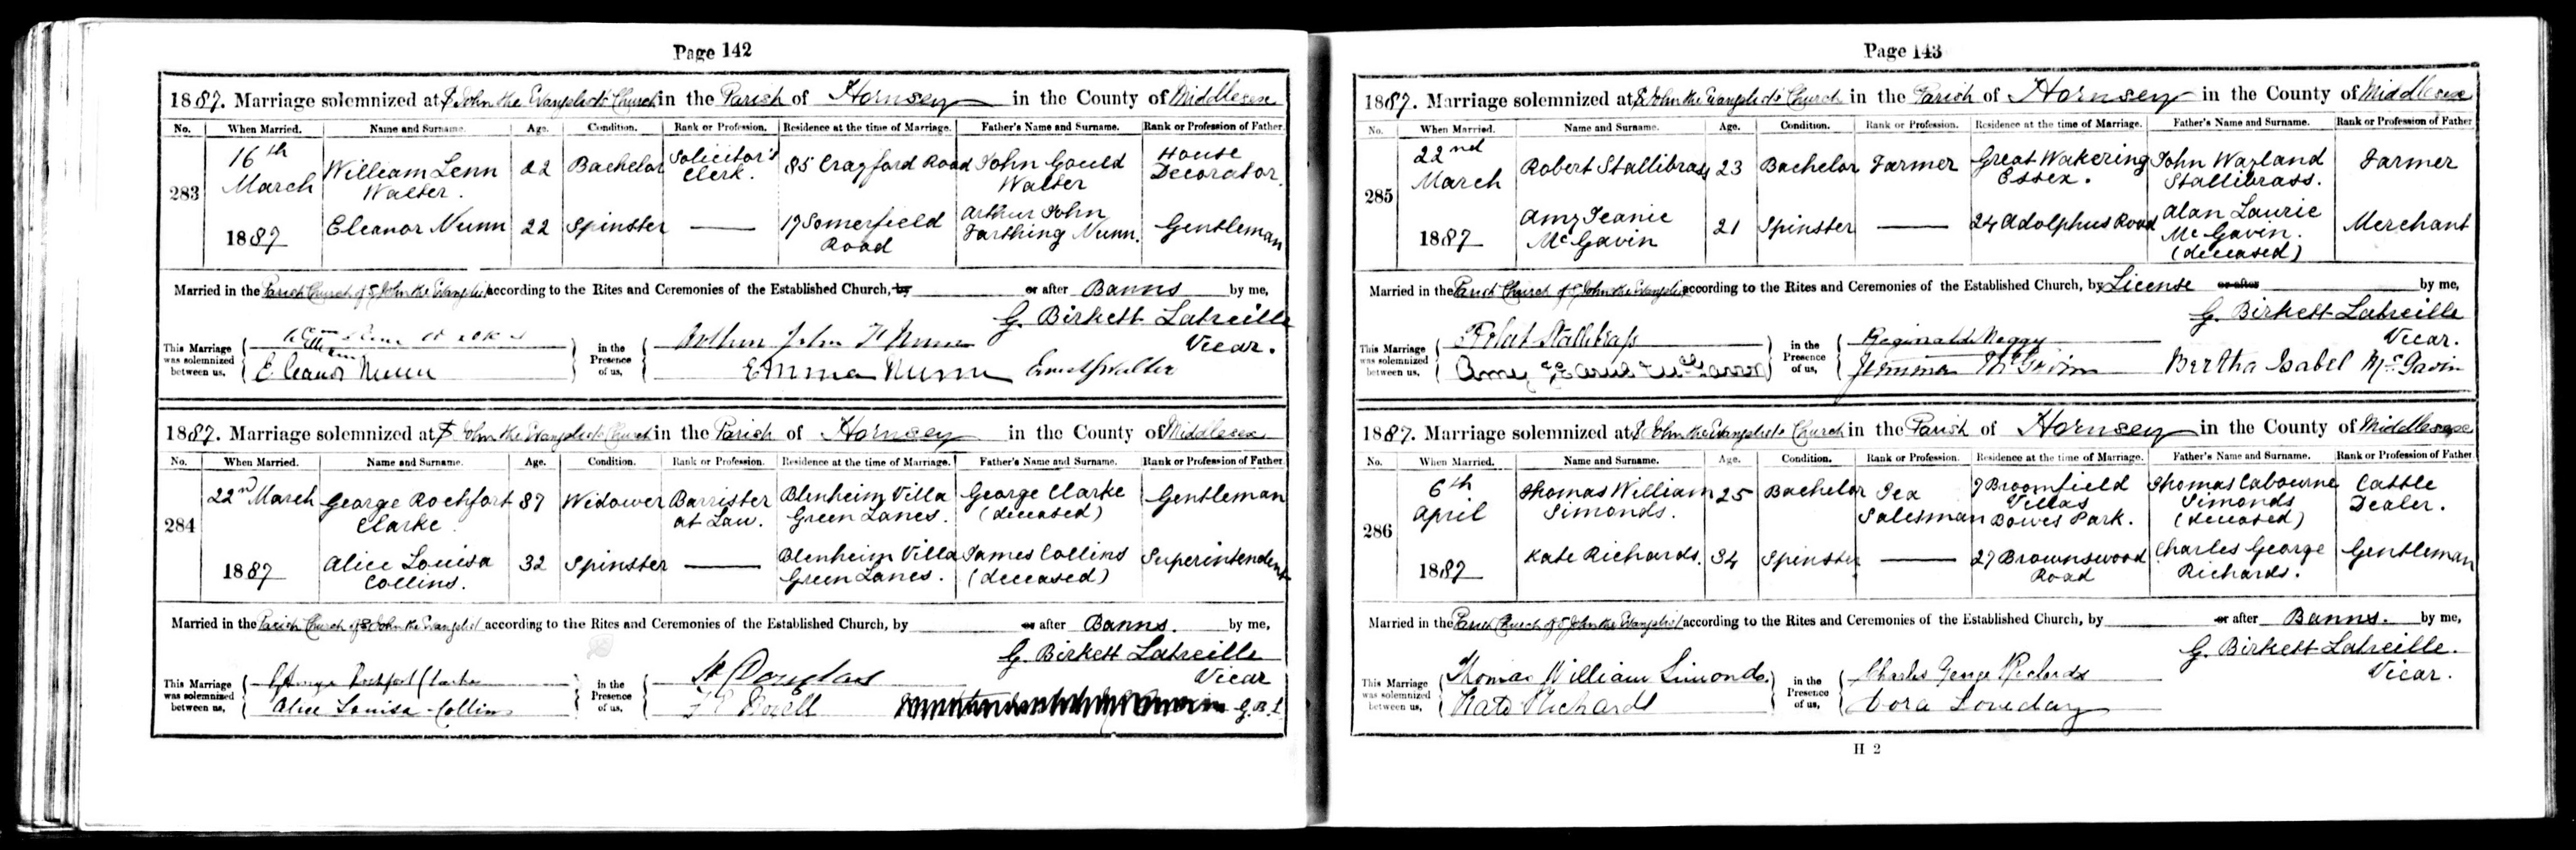 Page 142
1887. Marriage solemnized at St John the Evangelist's Church in the Parish of Hornsey in the County of Middlesex
No. When Married. Name and Surname. Age. Condition. Rank or Profession. Residence at the time of Marriage. Father's Name and Surname. Rank or Profession of Father.
283 16th March 1887 William Lenn Walter. 22 Bachelor Solicitor's Clerk. 85 Crayford Road John Gould Walter House Decorator.
Eleanor Nunn 22 Spinster 17 Somerfield Road Arthur John Farthing Nunn. Gentleman
Married in the Parish Church of St John the Evangelist according to the Rites and Ceremonies of the Established Church, by or after Banns by me,
G. Birkett Latreille
Vicar.
This Marriage was solemnized between us, Eleanor Nunn
in the Presence of us, Arthur John F Nunn
Emma Nunn Ernest Walter
1887. Marriage solemnized at St John the Evangelist's Church in the Parish of Hornsey in the County of Middlesex
No. When Married. Name and Surname. Age. Condition. Rank or Profession. Residence at the time of Marriage. Father's Name and Surname. Rank or Profession of Father.
284 22nd March 1887 George Rochfort Clarke. 87 Widower Barrister at Law. Blenheim Villa Green Lanes. George Clarke (deceased) Gentleman
Alice Louisa Collins. 32 Spinster Blenheim Villa Green Lanes. James Collins (deceased) Superintendent
Married in the Parish Church of St John the Evangelist according to the Rites and Ceremonies of the Established Church, by or after Banns. by me,
G. Birkett Latreille
Vicar
This Marriage was solemnized between us, George Rochfort Clarke
Alice Louisa Collins
in the Presence of us, Douglas
G.B.L
Page 143
1887. Marriage solemnized at St John the Evangelist's Church in the Parish of Hornsey in the County of Middlesex
No. When Married. Name and Surname. Age. Condition. Rank or Profession. Residence at the time of Marriage. Father's Name and Surname. Rank or Profession of Father
285 22nd March 1887 Robert Stallibrass 23 Bachelor Farmer Great Wakering Essex. John Wayland Stallibrass. Farmer
Amy Jeanie McGavin 21 Spinster 24 Adolphus Road Alan Laurie McGavin. (deceased) Merchant
Married in the Parish Church of St John the Evangelist according to the Rites and Ceremonies of the Established Church, by License or after by me,
G. Birkett Latreille
Vicar.
This Marriage was solemnized between us, Robert Stallibrass
Amy Jeanie McGavin
in the Presence of us, Reginald
Jemima McGavin Bertha Isabel McGavin
1887. Marriage solemnized at St John the Evangelist's Church in the Parish of Hornsey in the County of Middlesex
No. When Married. Name and Surname. Age. Condition. Rank or Profession. Residence at the time of Marriage. Father's Name and Surname. Rank or Profession of Father
286 6th April 1887 Thomas William Simonds. 25 Bachelor Tea Salesman 7 Broomfield Villas Bowes Park. Thomas Cabourne Simonds (deceased) Cattle Dealer.
Kate Richards. 34 Spinster 27 Brownswood Road Charles George Richards. Gentleman
Married in the Parish Church of St John the Evangelist according to the Rites and Ceremonies of the Established Church, by or after Banns. by me,
G. Birkett Latreille.
Vicar.
This Marriage was solemnized between us, Thomas William Simonds
Kate Richards
in the Presence of us, Charles George Richards
Dora Loveday
H 2